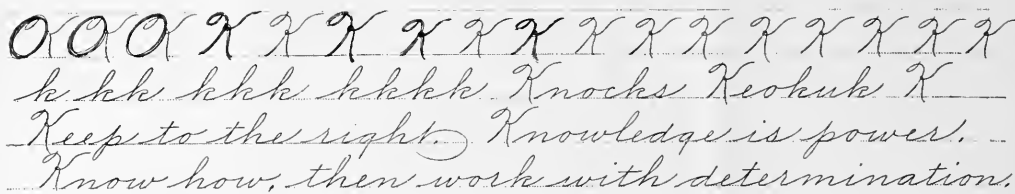 O O O K K K K K K K K K K K K K K
k kk kkk kkkk Knocks Keokuk K
Keep to the right. Knowledge is power.
Know how, then work with determination.